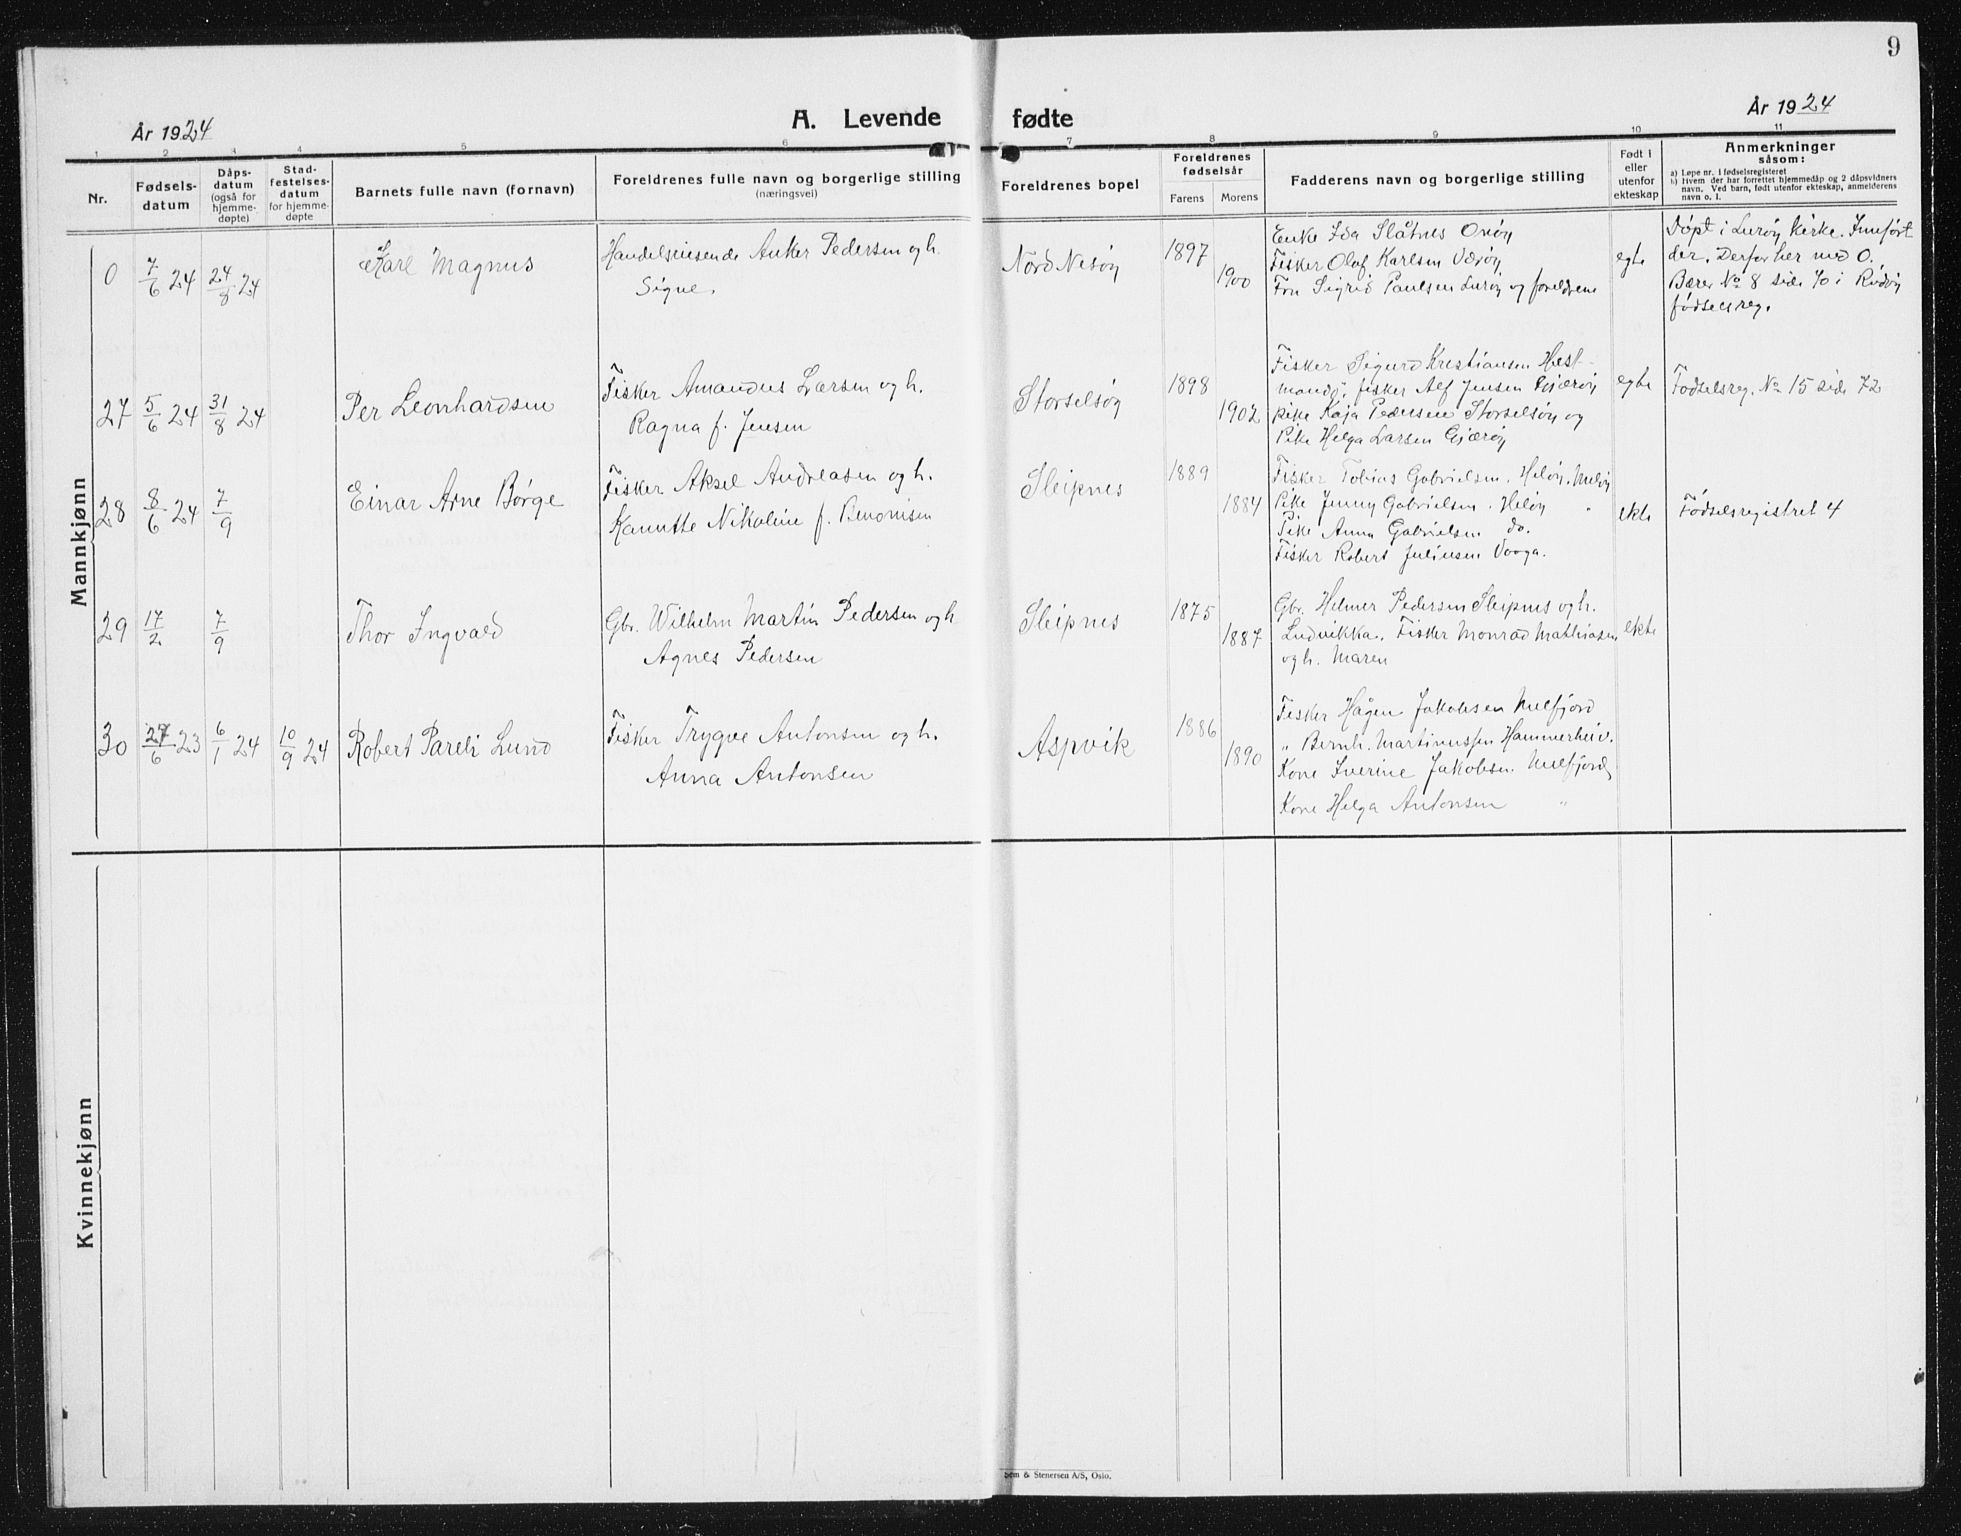 9
År 1924
A. Levende fødte
År 1924
1 2 3 4 5 6 7 8 9 10 11
Nr.
Fødsels-
datum
Dåps-
datum
(også for
hjemme-
døpte)
Stad-
festelses-
datum
for hjemme-
døpte
Barnets fulle navn (fornavn)
Foreldrenes fulle navn og borgerlige stilling
(næringsvei)
Foreldrenes bopel
Foreldrenes
fødselsår
Farens
Morens
Fadderens navn og borgerlige stilling
Født i
eller
utenfor
ekteskap
Anmerkninger
såsom:
a) Løpe nr. i fødselsregisteret
b) Hvem der har forrettet hjemmedåp og 2 dåpsvidners
navn. Ved barn, født utenfor ekteskap, anmelderens
navn o. l.
Mannkjønn
0
7/6 24
24/8 24
Karl Magnus
Handelsreisende Anker Pedersen og h.
Signe.
Nord Nesøy
1897
1900
Enke Ida Slåtnes Onøy
Fisker Olaf Karlsen Værøy
Fru Sigrid Paulsen Lurøy og foreldrene
egte
Døpt i Lurøy kirke. Innført
der. Derfor her med 0.
Bærer No 8 side 70 i Rødøy
fødselsreg.
27
5/6 24
31/8 24
Per Leonhardsen
Fisker Amandus Larsen og h.
Ragna f. Jensen
Storselsøy
1898
1902
Fisker Sigurd Kristiansen Hest-
mandø, fisker Alf Jensen Gjærøy
pike Kaja Pedersen Storselsøy og
Pike Helga Larsen Gjærøy
egte
Fødselsreg. No 15 side 72
28
8/6 24
7/9
Einar Arne Børge
Fisker Aksel Andreasen og h.
Hanette Nikoline f. Benonisen
Sleipnes
1889
1884
Fisker Tobias Gabrielsen. Heløy. Meløy
Pike Jenny Gabrielsen. Heløy "
Pike Anna Gabrielsen do.
Fisker Robert Juliusen Vaaga.
ekte
Fødselsregistret 4
29
17/2
7/9
Thor Ingvald
Gbr. Wilhelm Martin Pedersen og h
Agnes Pedersen
Sleipnes
1875
1887
Gbr. Helmer Pedersen Sleipnes og h.
Ludvikka. Fisker Monrad Mathiasen
og h. Maren
ekte
30
27/6 23
6/1 24
10/9 24
Robert Pareli Lund
Fisker Trygve Antonsen og h.
Anna Antonsen
Aspvik
1886
1890
Fisker Hågen Jakobsen Melfjord
" Bernh. Martinussen Hammerheiv.
Kone Iverine Jakobsen. Melfjord
Kone Helga Antonsen "
Kvinnekjønn
& Stenersen A/S, Oslo.